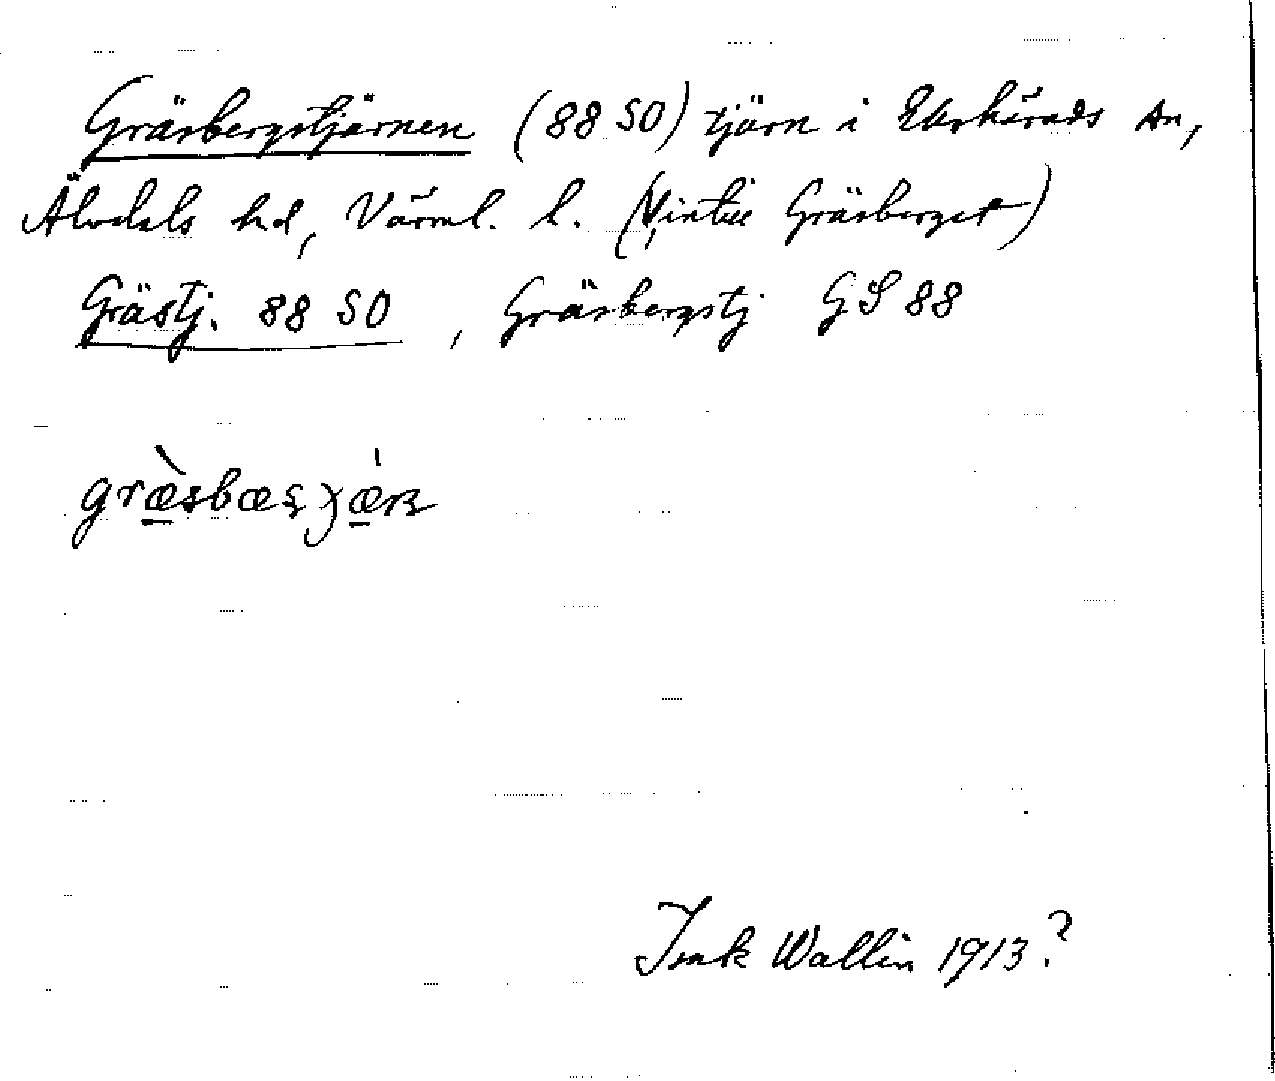 Gräsbergstjärnen (88 SO) tjärn i Ekshärads sn,
Älvdals hd, Värml. l. (Vintue Gräsberget)
Grästj. 88 SO , Gräsbergstj GS 88
Isak Wallin 1913?